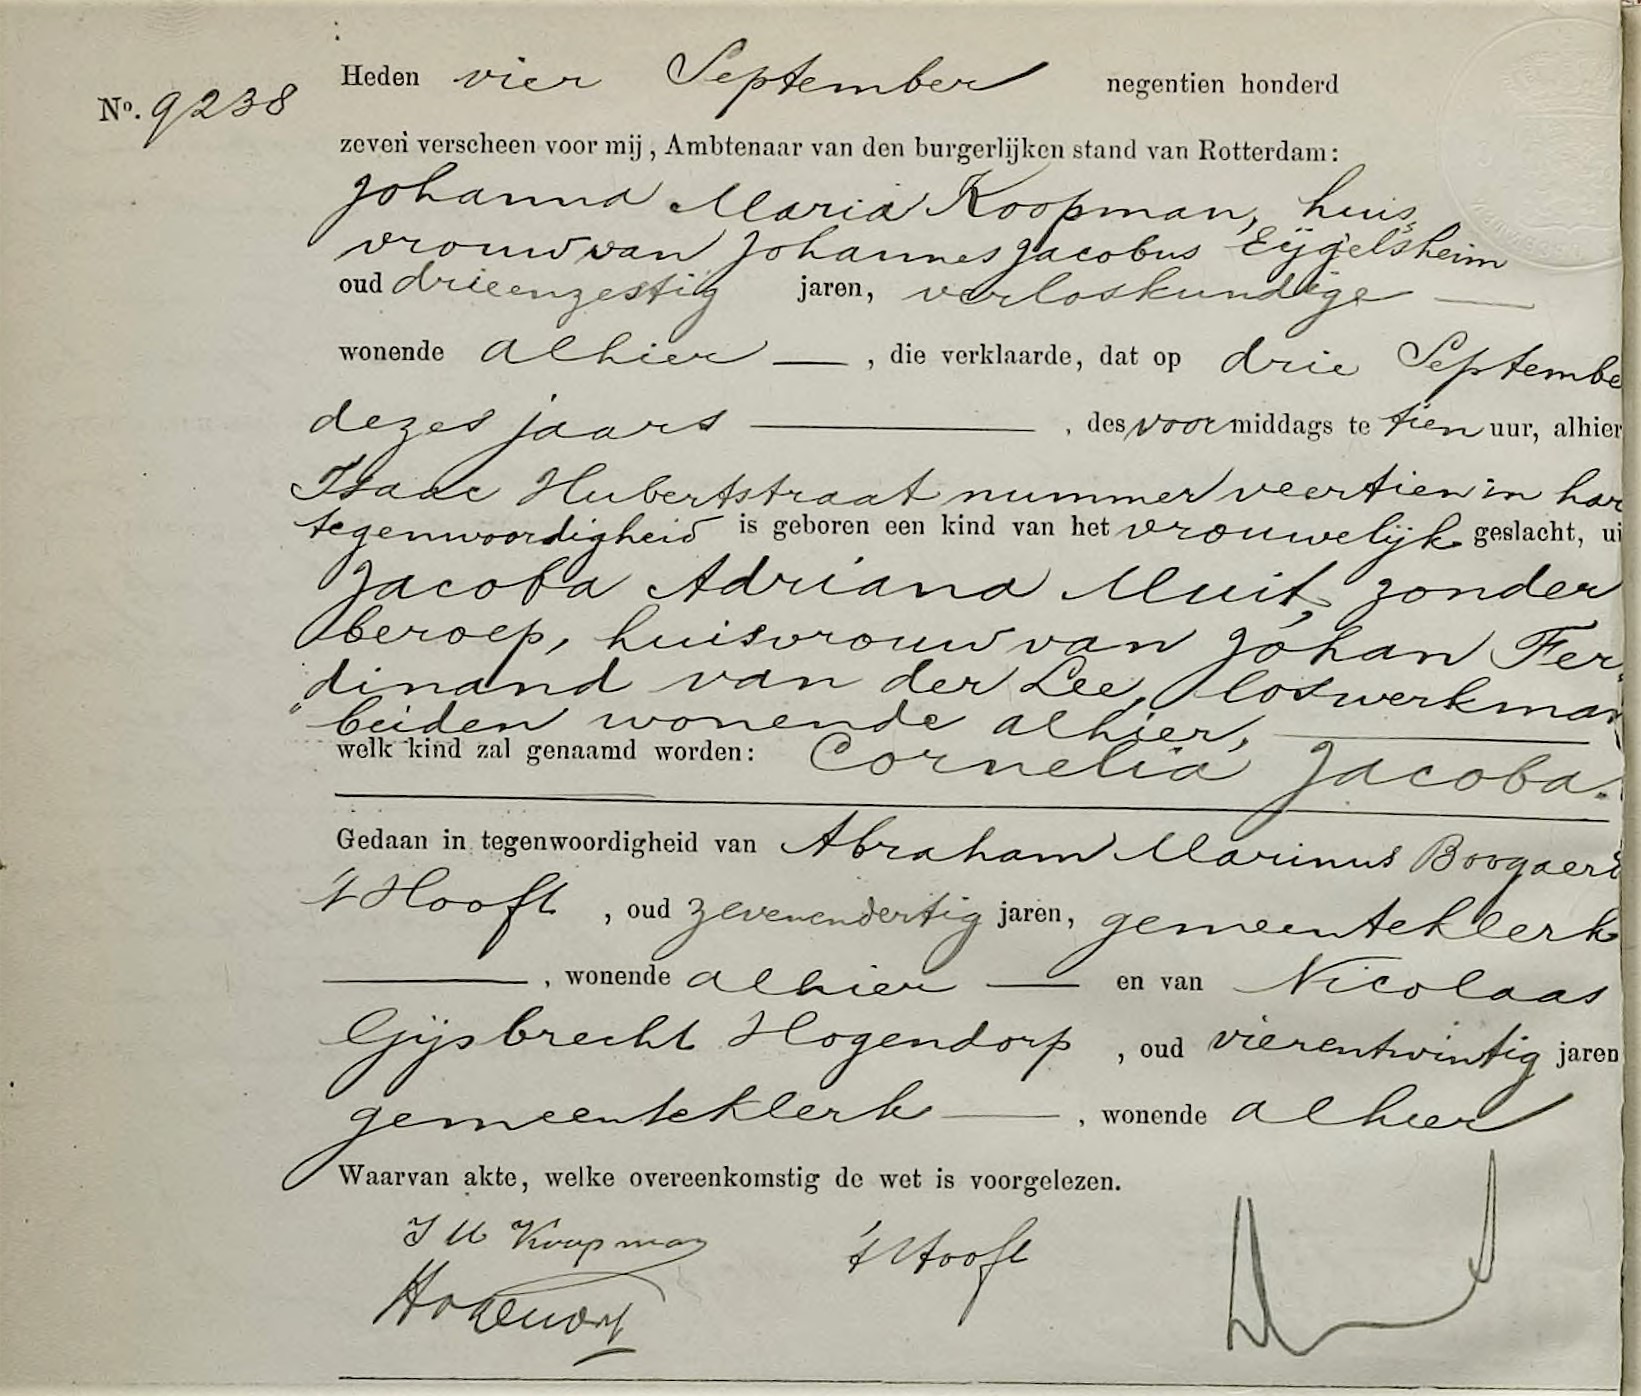 Heden vier September negentien honderd
No. 9238
zeven verscheen voor mij, Ambtenaar van den burgerlijken stand van Rotterdam:
Johanna Maria Koopman, huis,
vrouw van Johannes Jacobus Eijgelsheim
oud drieenzestig jaren, verloskundige
wonende alhier, die verklaarde, dat op drie Septembe
dezes jaars, des voormiddags te tien uur, alhier
Isaac Hubertstraat nummer veertien in har
tegenwoordigheid is geboren een kind van het vrouwelijk geslacht, ui
Jacoba Adriana Muit, zonder
beroep, huisvrouw van Johan Fer„
„dinand van der Lee, loswerkman
beiden wonende alhier,
welk kind zal genaamd worden: Cornelia Jacoba.
Gedaan in tegenwoordigheid van Abraham Marinus Boogaert
't Hooft, oud zevenendertig jaren, gemeenteklerk
, wonende alhier en van Nicolaas
Gijsbrecht Hogendorp, oud vierentwintig jaren
gemeenteklerk, wonende alhier
Waarvan akte, welke overeenkomstig de wet is voorgelezen.
J M Koopman 't Hooft
Hogendorp